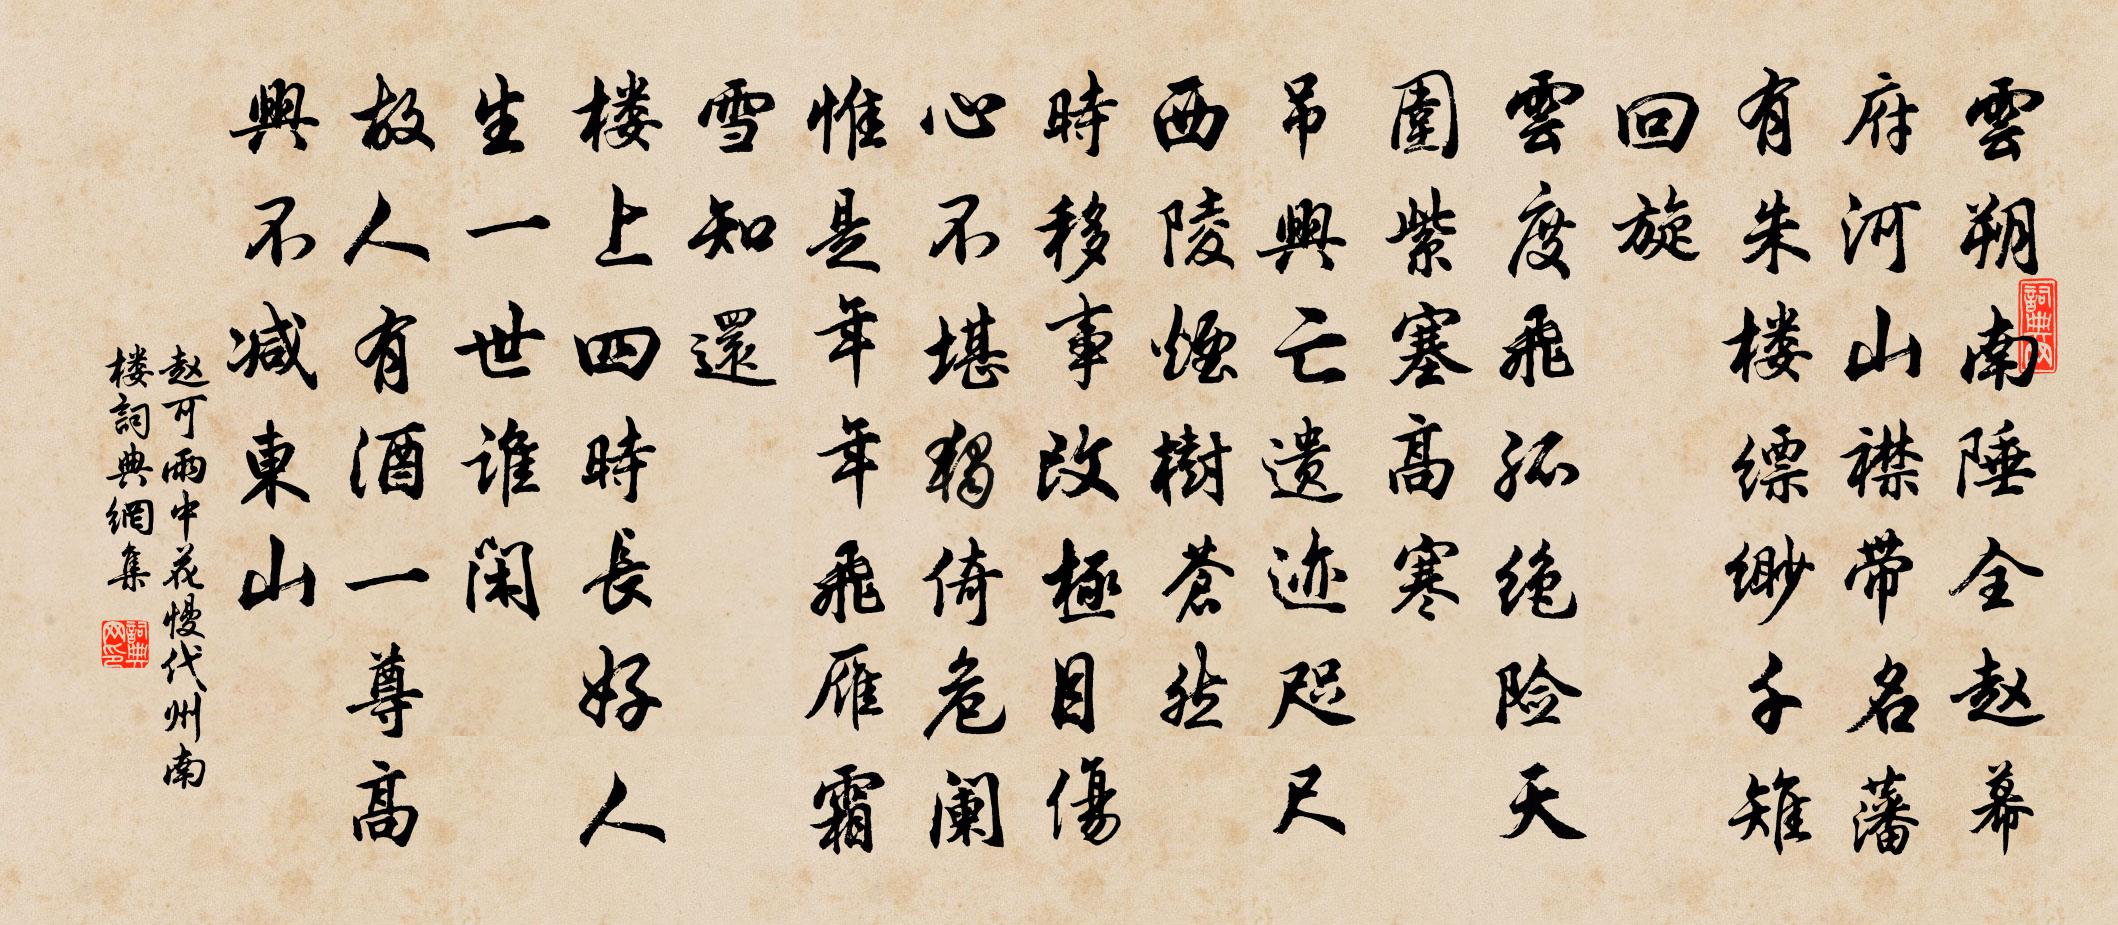 雲朔南陲全赵幕
府河山襟带名藩
有朱楼缥缈千雉
回旋
雲度飛孤绝险天
圍紫塞高寒
吊興亡遗迹咫尺
西陵煙樹蒼然
時移事改極目傷
心不堪独倚危阑
惟是年年飛雁霜
雪知還
楼上四時長好人
生一世谁闲
故人有酒一尊高
興不减東山
赵可雨中花慢代州南
楼詞典網集
詞典网
詞典网印